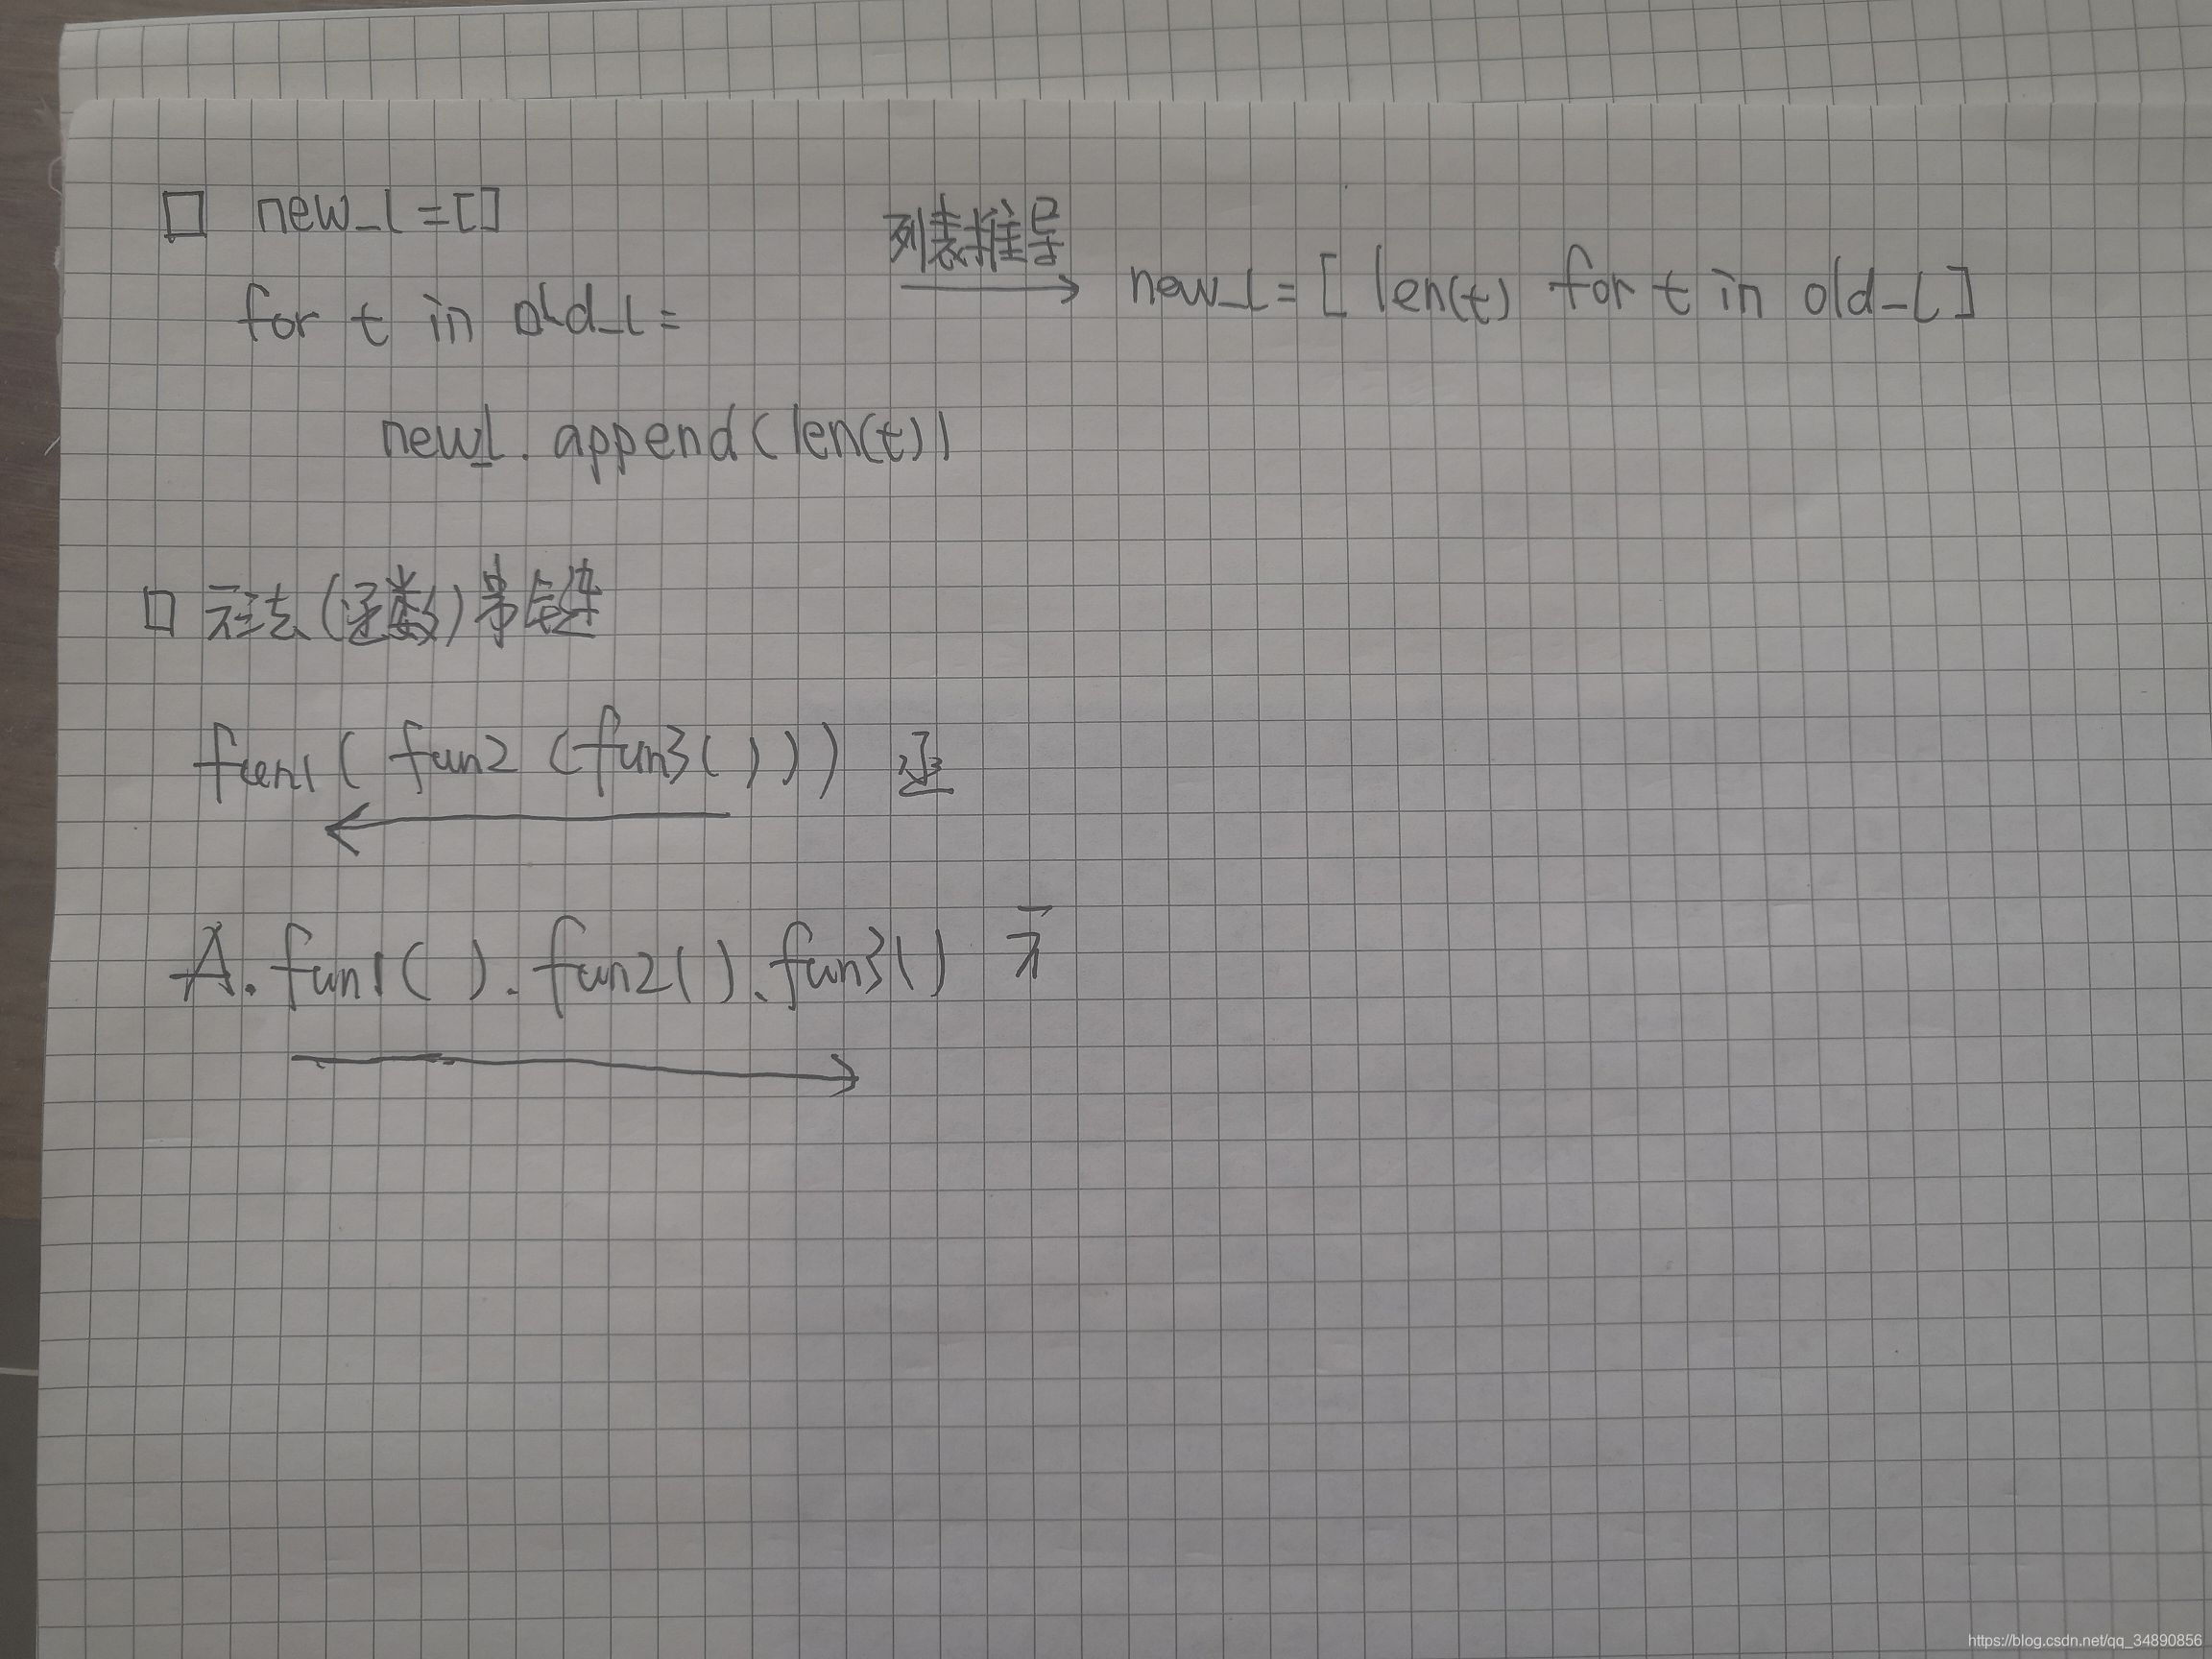 □ new_l = []
列表推导
for t in old_l =
new_l = [ len(t) for t in old_l ]
new_l. append(len(t))
□ 方法(函数)串链
fun1( fun2 (fun3( ) ) )
A.fun1( ).fun2( ).fun3( )
https://blog.csdn.net/qq_34890856